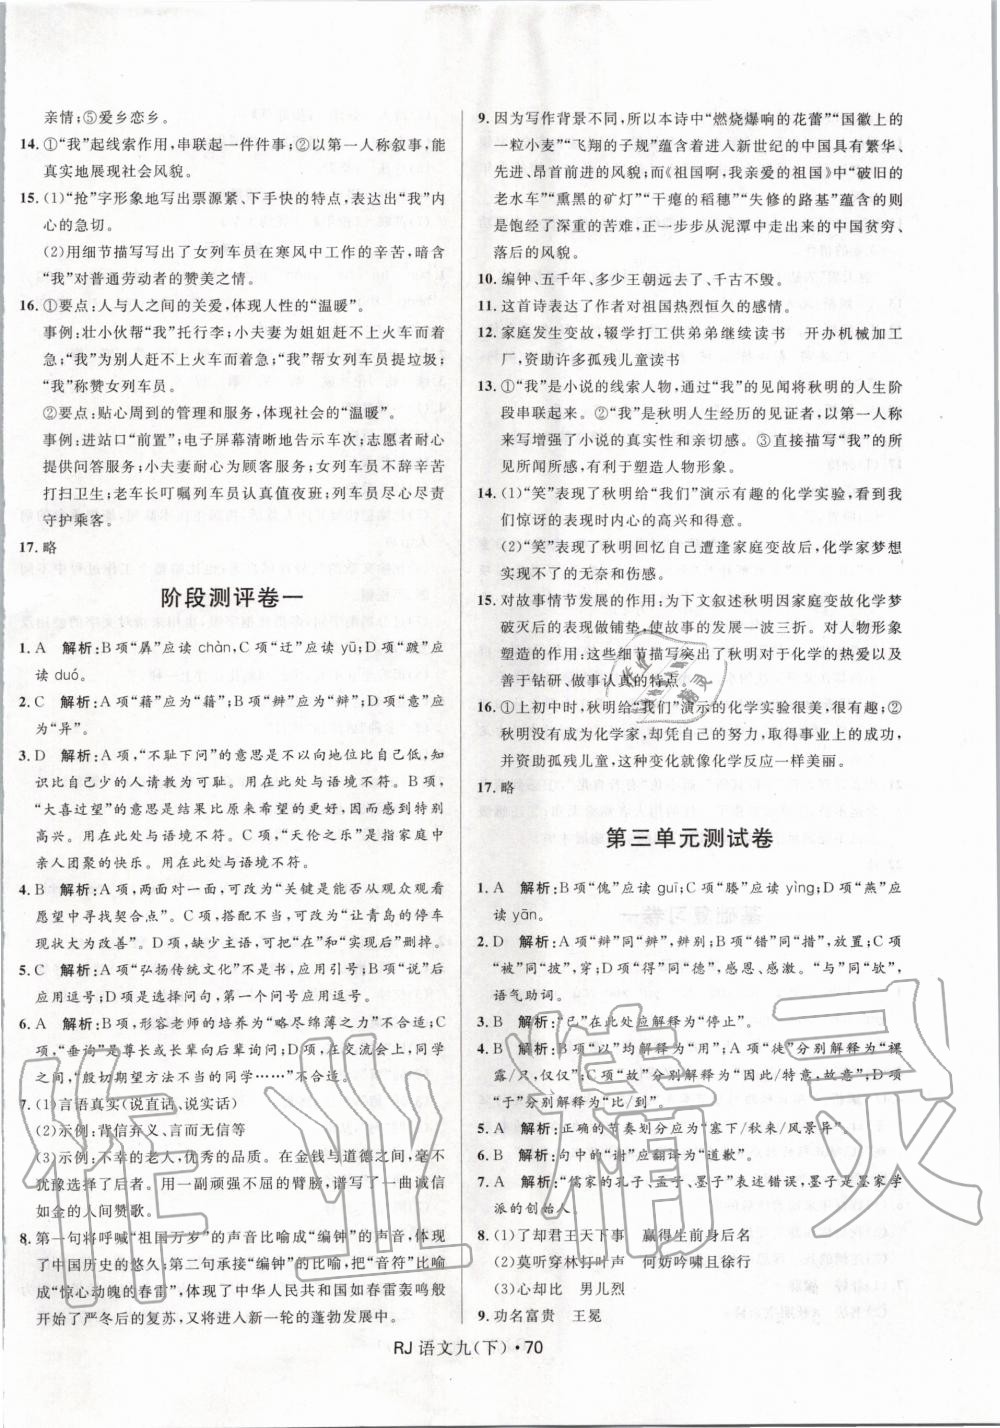 亲情;⑤爱乡恋乡。
14. ①“我”起线索作用,串联起一件件事;②以第一人称叙事,能
真实地展现社会风貌。
15. (1)“抢”字形象地写出票源紧、下手快的特点,表达出“我”内
心的急切。
(2)用细节描写写出了女列车员在寒风中工作的辛苦,暗含
“我”对普通劳动者的赞美之情。
16. ①要点:人与人之间的关爱,体现人性的“温暖”。
事例:壮小伙帮“我”托行李;小夫妻为姐姐赶不上火车而着
急;“我”为别人赶不上火车而着急;“我”帮女列车员提垃圾;
“我”称赞女列车员。
②要点:贴心周到的管理和服务,体现社会的“温暖”。
事例:进站口“前置”;电子屏幕清晰地告示车次;志愿者耐心
提供问答服务;小夫妻耐心为我服务;女列车员不辞辛苦
打扫卫生;老车长叮嘱列车员认真值夜班;列车员尽职尽责
守护乘客。
17. 略
阶段测评卷一
1. A 解析:B项“孱”应读 chàn,C项“迂”应读 yū;D项“踱”应
读 duó。
2. C 解析:A项“藉”应为“籍”;B项“辨”应为“辩”;D项“意”应
为“异”。
3. D 解析:A项,“不耻下问”的意思是不以向地位比自己低,知
识比自己少的人请教为可耻。用在此处与语境不符。B项,
“大喜过望”的意思是结果比原来希望的更好,因而感到特别
高兴。用在此处与语境不符。C项,“天伦之乐”是指家庭中
亲人团聚的快乐。用在此处与语境不符。
4. B 解析:A项,两面对一面,可改为“关键是能否从观众观看
愿望中寻找契合点”。C项,搭配不当,可改为“让青岛的停车
现状大为改善”。D项,缺少主语,可把“在”和“实现后”删掉。
5. C 解析:A项“弘扬传统文化”不是书,应用引号;B项“说”后
应用逗号;D项是选择问句,第一个问号应用逗号。
6. A 解析:B项,形容老师的培养为“略尽绵薄之力”不合适;C
项,“垂询”是尊长或长辈向后辈问方;D项,在交流会上,提
出,“殷切期望方法不当的同学……”不合适。
7. (1)言语真实(说直话、说实话)
(2)示例:背信弃义、言而无信等
(3)示例:不幸的老人,优秀品质,在金钱与道德之间,毫不
犹豫选择了后者。用一副顽强不屈的臂膀,谱写了一曲诚信
如金的人间赞歌。
8. 第一句将呼喊“祖国万岁”的声音比喻成“编钟”的声音,体现
了中国历史的悠久;第二句承接“编钟”的比喻,把“音符”比喻
成“惊心动魄的春雷”,体现了中华人民共和国如春雷轰鸣般
开始了严冬后的复苏,又将进入新一轮的蓬勃发展中。
9. 因为写作背景不同,所以本诗中“燃烧爆响的花蕾”“国徽上的
一粒小麦”“飞翔的子规”蕴含着进入新世纪的中国具有繁华、
先进、昂首前进的风貌;而《祖国啊,我亲爱的祖国》中“破旧的
老水车”“熏黑的矿灯”“干瘪的稻穗”“失修的路基”蕴含的则
是饱经了深重的苦难,正一步步从泥潭中走出来的中国贫穷、
落后的风貌。
10. 编钟、五千年、多少王朝远去了、千古不毁。
11. 这首诗表达了作者对祖国热烈恒久的感情。
12. 家庭发生变故,辍学打工供弟弟继续读书 开办机械加工
厂,资助许多孤残儿童读书
13. ①“我”是小说的线索人物,通过“我”的见闻将秋明的人生阶
段串联起来。②“我”是秋明人生经历的见证者,以第一人称
来写增强了小说的真实性和亲切感。③直接描写“我”的所
见所闻所感,有利于塑造人物形象。
14. (1)“笑”表现了秋明给“我们”演示有趣的化学实验,看到我
们惊讶的表现时内心的高兴和得意。
(2)“笑”表现了秋明回忆自己遭逢家庭变故后,化学家梦想
实现不了的无奈和伤感。
15. 对故事情节发展的作用:为下文叙述秋明因家庭变故化学梦
破灭后的表现做铺垫,使故事的发展一波三折。对人物形象
塑造的作用:这些细节描写突出了秋明对化学的热爱以及
善于钻研、做事认真的特点。
16. ①上初中时,秋明给“我们”演示的化学实验很美,很有趣;②
秋明没有成为化学家,却凭自己的努力,取得事业上的成功,
并资助孤残儿童,这种变化就像化学反应一样美丽。
17. 略
第三单元测试卷
1. A 解析:B项“傀”应读 guī;C项“媵”应读 yìng;D项“燕”应
读 yān。
2. D 解析:A项“辩”同“辨”,辨别;B项“错”同“措”,放置;C项
“被”同“披”,穿;D项“得”同“德”,感恩、感激。“与”同“欤”,
语气助词。
3. B 解析:“已”在此处应解释为“停止”。
4. B 解析:B项“以”均解释为“用”;A项“徒”分别解释为“裸
露/只,仅仅”;C项“故”分别解释为“因此/特意,故意”;D项
“于”分别解释为“比/到”。
5. A 解析:正确的节奏划分应为“塞下/秋来/风景异”。
6. B 解析:句中的“谢”应翻译为“道歉”。
7. A 解析:“儒家的孔子、孟子、墨子”表述错误,墨子是墨家学
派的创始人。
8. (1)了却君王天下事 赢得生前身后名
(2)莫听穿林打叶声 何妨吟啸且徐行
(3)心却比 男儿烈
9. 功名富贵 王冕
RJ 语文九(下)·70
作业精灵